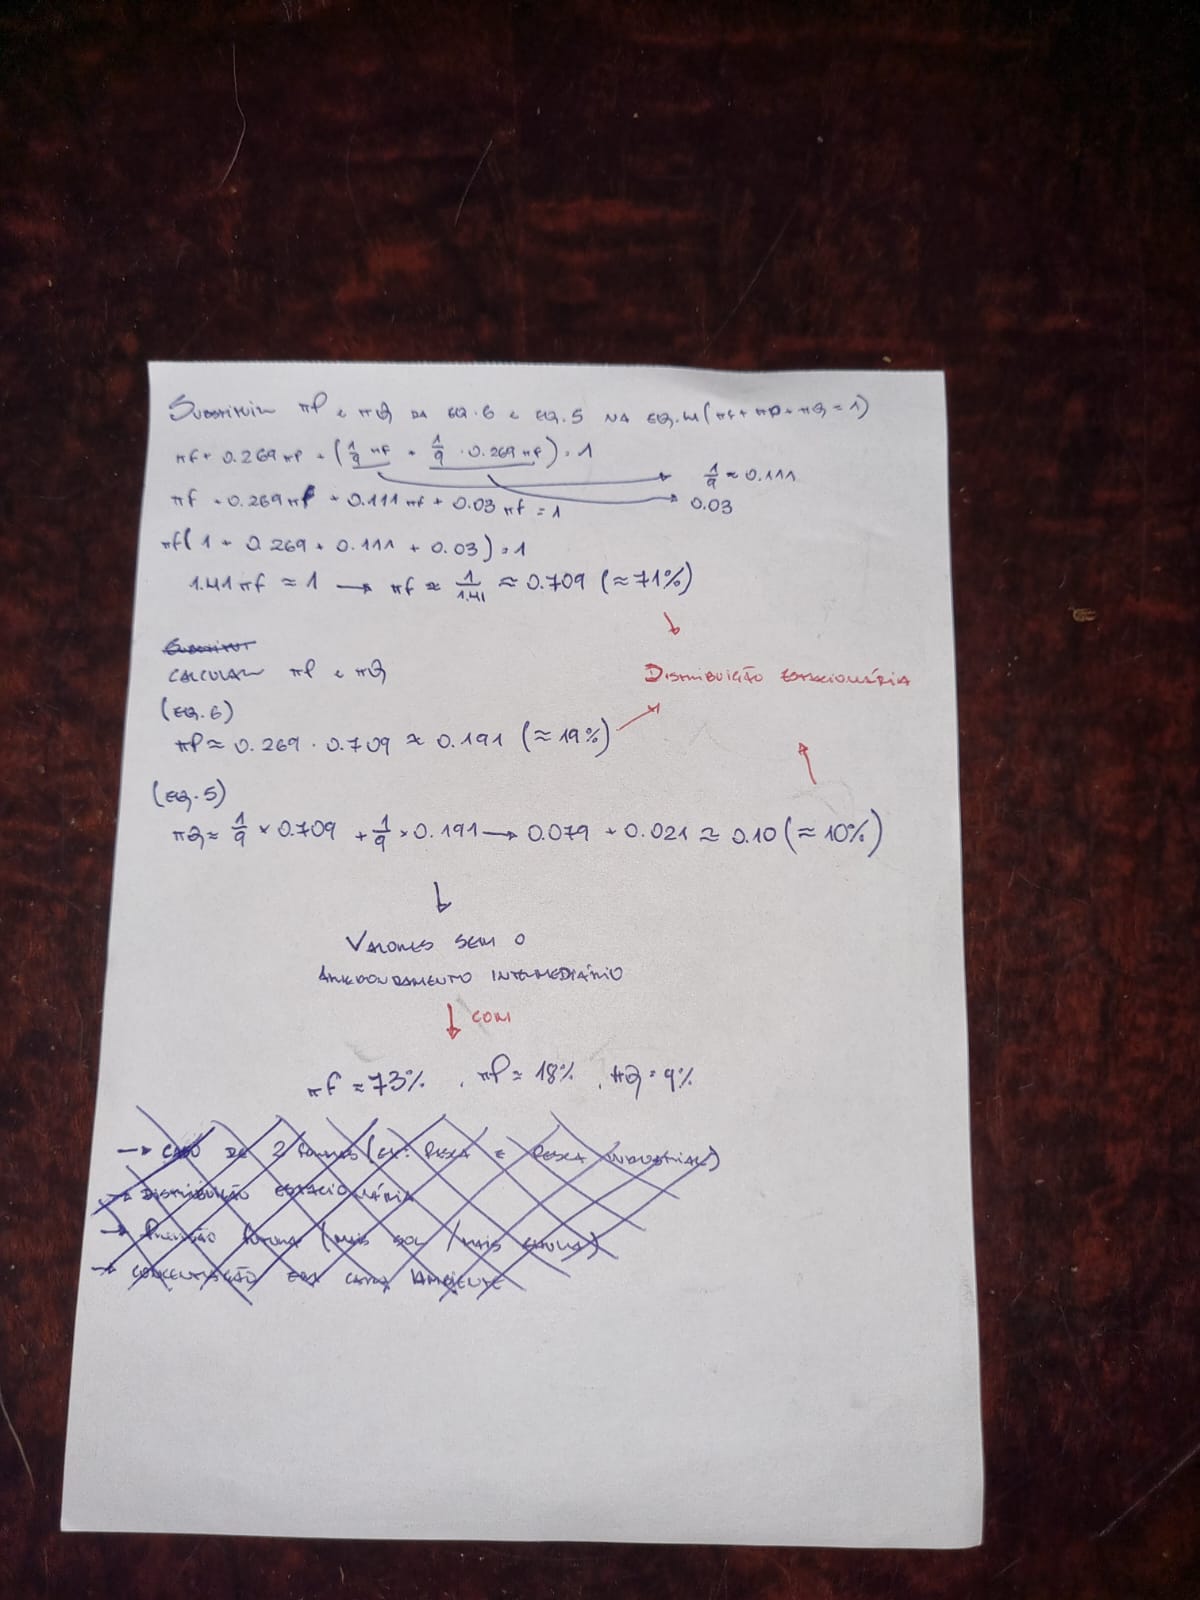 Substituir πP e πQ da eq. 6 e eq. 5 na eq. 4 (πf + πP + πQ = 1)
πf + 0.269 πf + (1/9 πf + 1/9 · 0.269 πf) = 1
1/9 ≈ 0.111
πf + 0.269 πf + 0.111 πf + 0.03 πf = 1
0.03
πf (1 + 0.269 + 0.111 + 0.03) = 1
1.41 πf ≈ 1 → πf ≈ 1/1.41 ≈ 0.709 (≈ 71%)
Calcular πP e πQ
Distribuição estacionária
(eq. 6)
πP ≈ 0.269 · 0.709 ≈ 0.191 (≈ 19%)
(eq. 5)
πQ ≈ 1/9 × 0.709 + 1/9 × 0.191 → 0.079 + 0.021 ≈ 0.10 (≈ 10%)
↓
Valores sem o
arredondamento intermediário
↓ com
πf ≈ 73% , πP ≈ 18% , πQ ≈ 9%
→ Caso de 2 (ex: pesca e pesca industrial)
→ Distribuição estacionária
→ Previsão futura (mais sol / mais chuva)
→ Concentração em cada ambiente